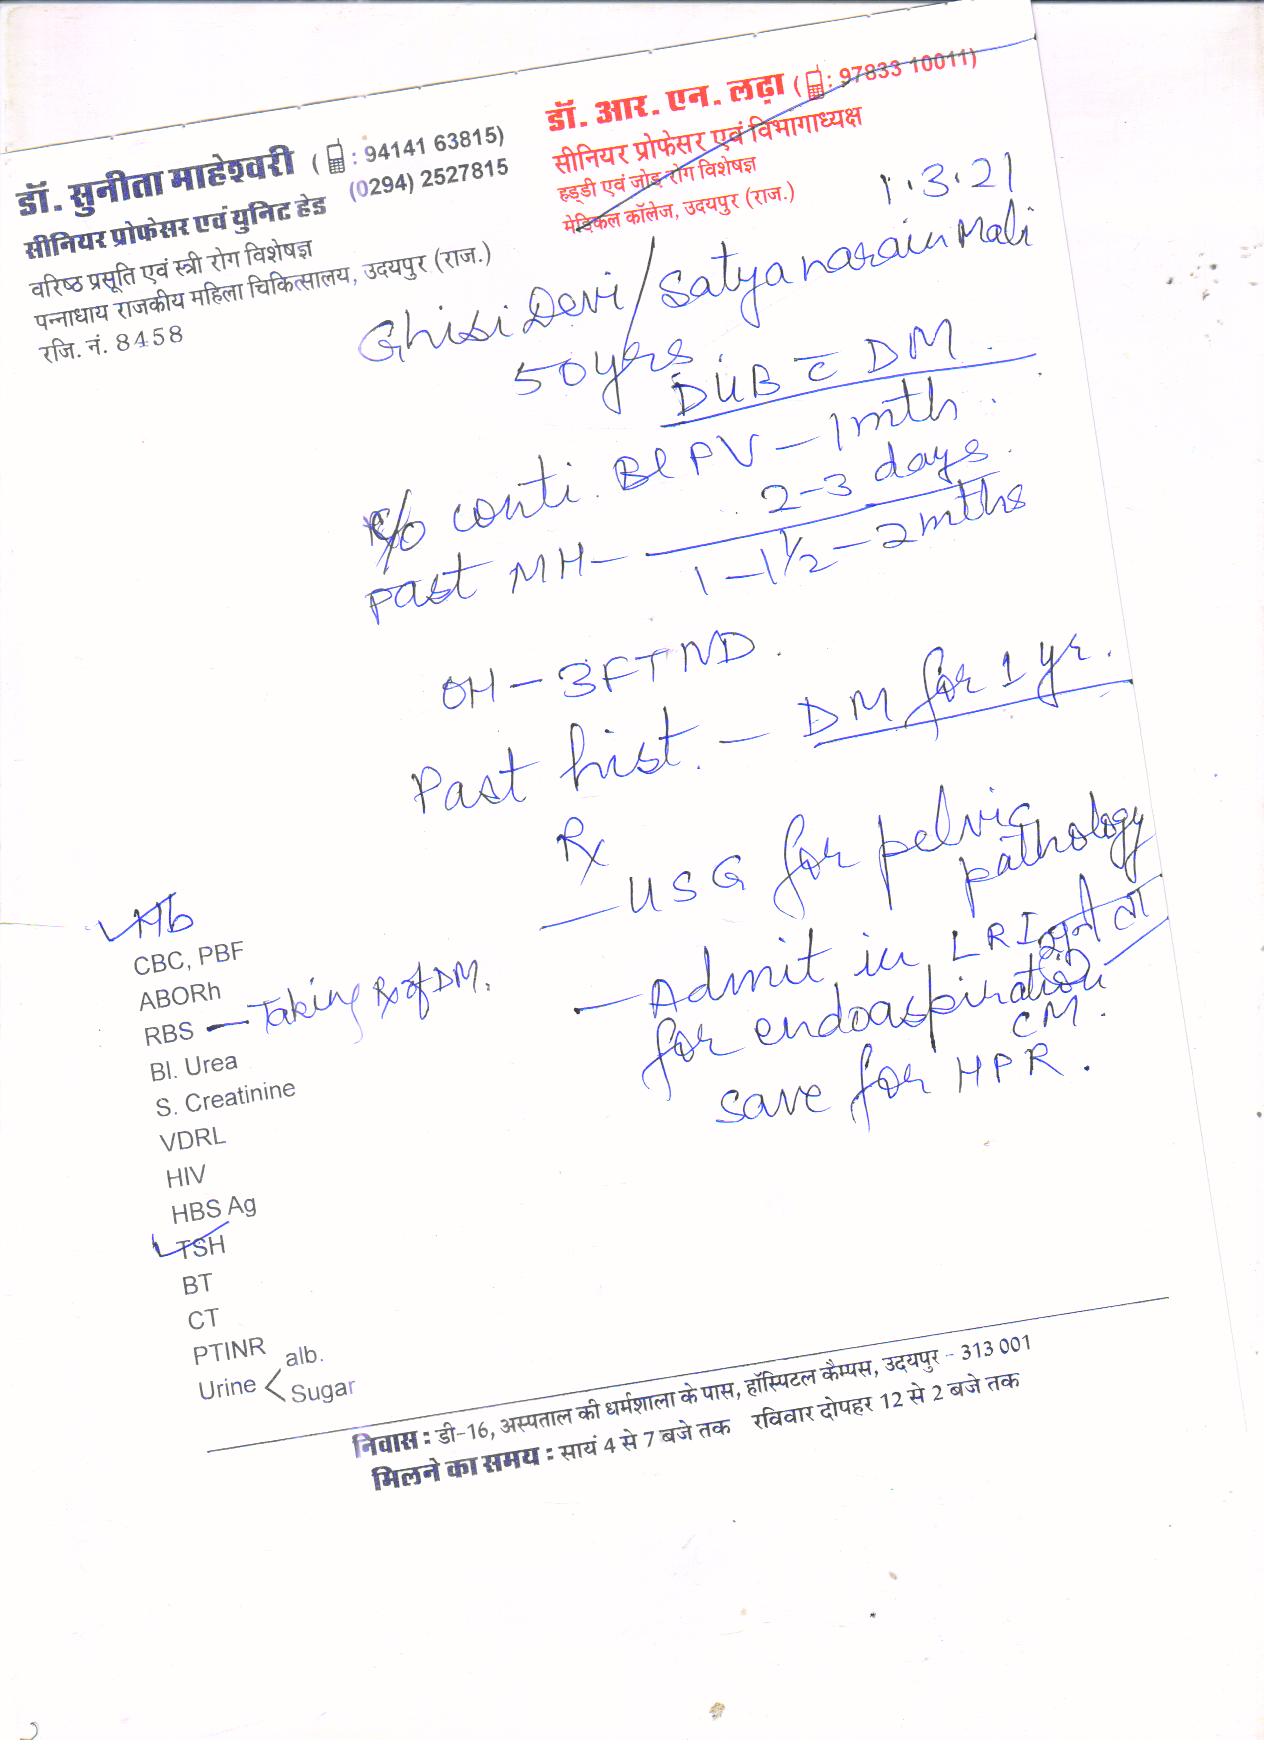 डॉ. सुनीता माहेश्वरी ( : 94141 63815)
(0294) 2527815
सीनियर प्रोफेसर एवं युनिट हेड
वरिष्ठ प्रसूति एवं स्त्री रोग विशेषज्ञ
पन्नाधाय राजकीय महिला चिकित्सालय, उदयपुर (राज.)
रजि. नं. 8458
डॉ. आर. एन. लढ़ा ( : 97833 10011)
सीनियर प्रोफेसर एवं विभागाध्यक्ष
हड्डी एवं जोड़ रोग विशेषज्ञ
मेडिकल कॉलेज, उदयपुर (राज.)
1.3.21
Ghisi Devi/Satyanarain Mali
50 yrs.
DUB c̄ DM.
c/o conti. Bl PV - 1 mth.
past MH - 2-3 days.
1 - 1½ - 2 mths
OH - 3 FTND.
Past hist. - DM for 1 yr.
Rx
- USG for pelvic
pathology
- Admit in LRI
for endoaspiration
CM.
save for HPR.
Hb
CBC, PBF
ABORh
RBS - Taking Rx of DM.
Bl. Urea
S. Creatinine
VDRL
HIV
HBS Ag
TSH
BT
CT
PTINR
Urine < alb.
Sugar
निवास : डी-16, अस्पताल की धर्मशाला के पास, हॉस्पिटल कैम्पस, उदयपुर - 313 001
मिलने का समय : सायं 4 से 7 बजे तक रविवार दोपहर 12 से 2 बजे तक